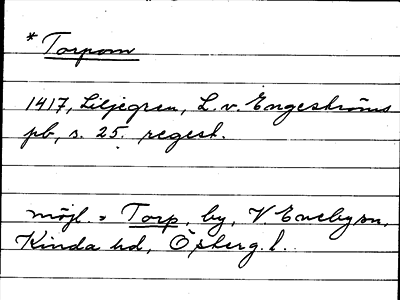 * Torpom
1417, Liljegren, L. v. Engeströms
pb, s. 25. regest.
möjl. = Torp, by, V. Eneby sn,
Kinda hd, Östergl.